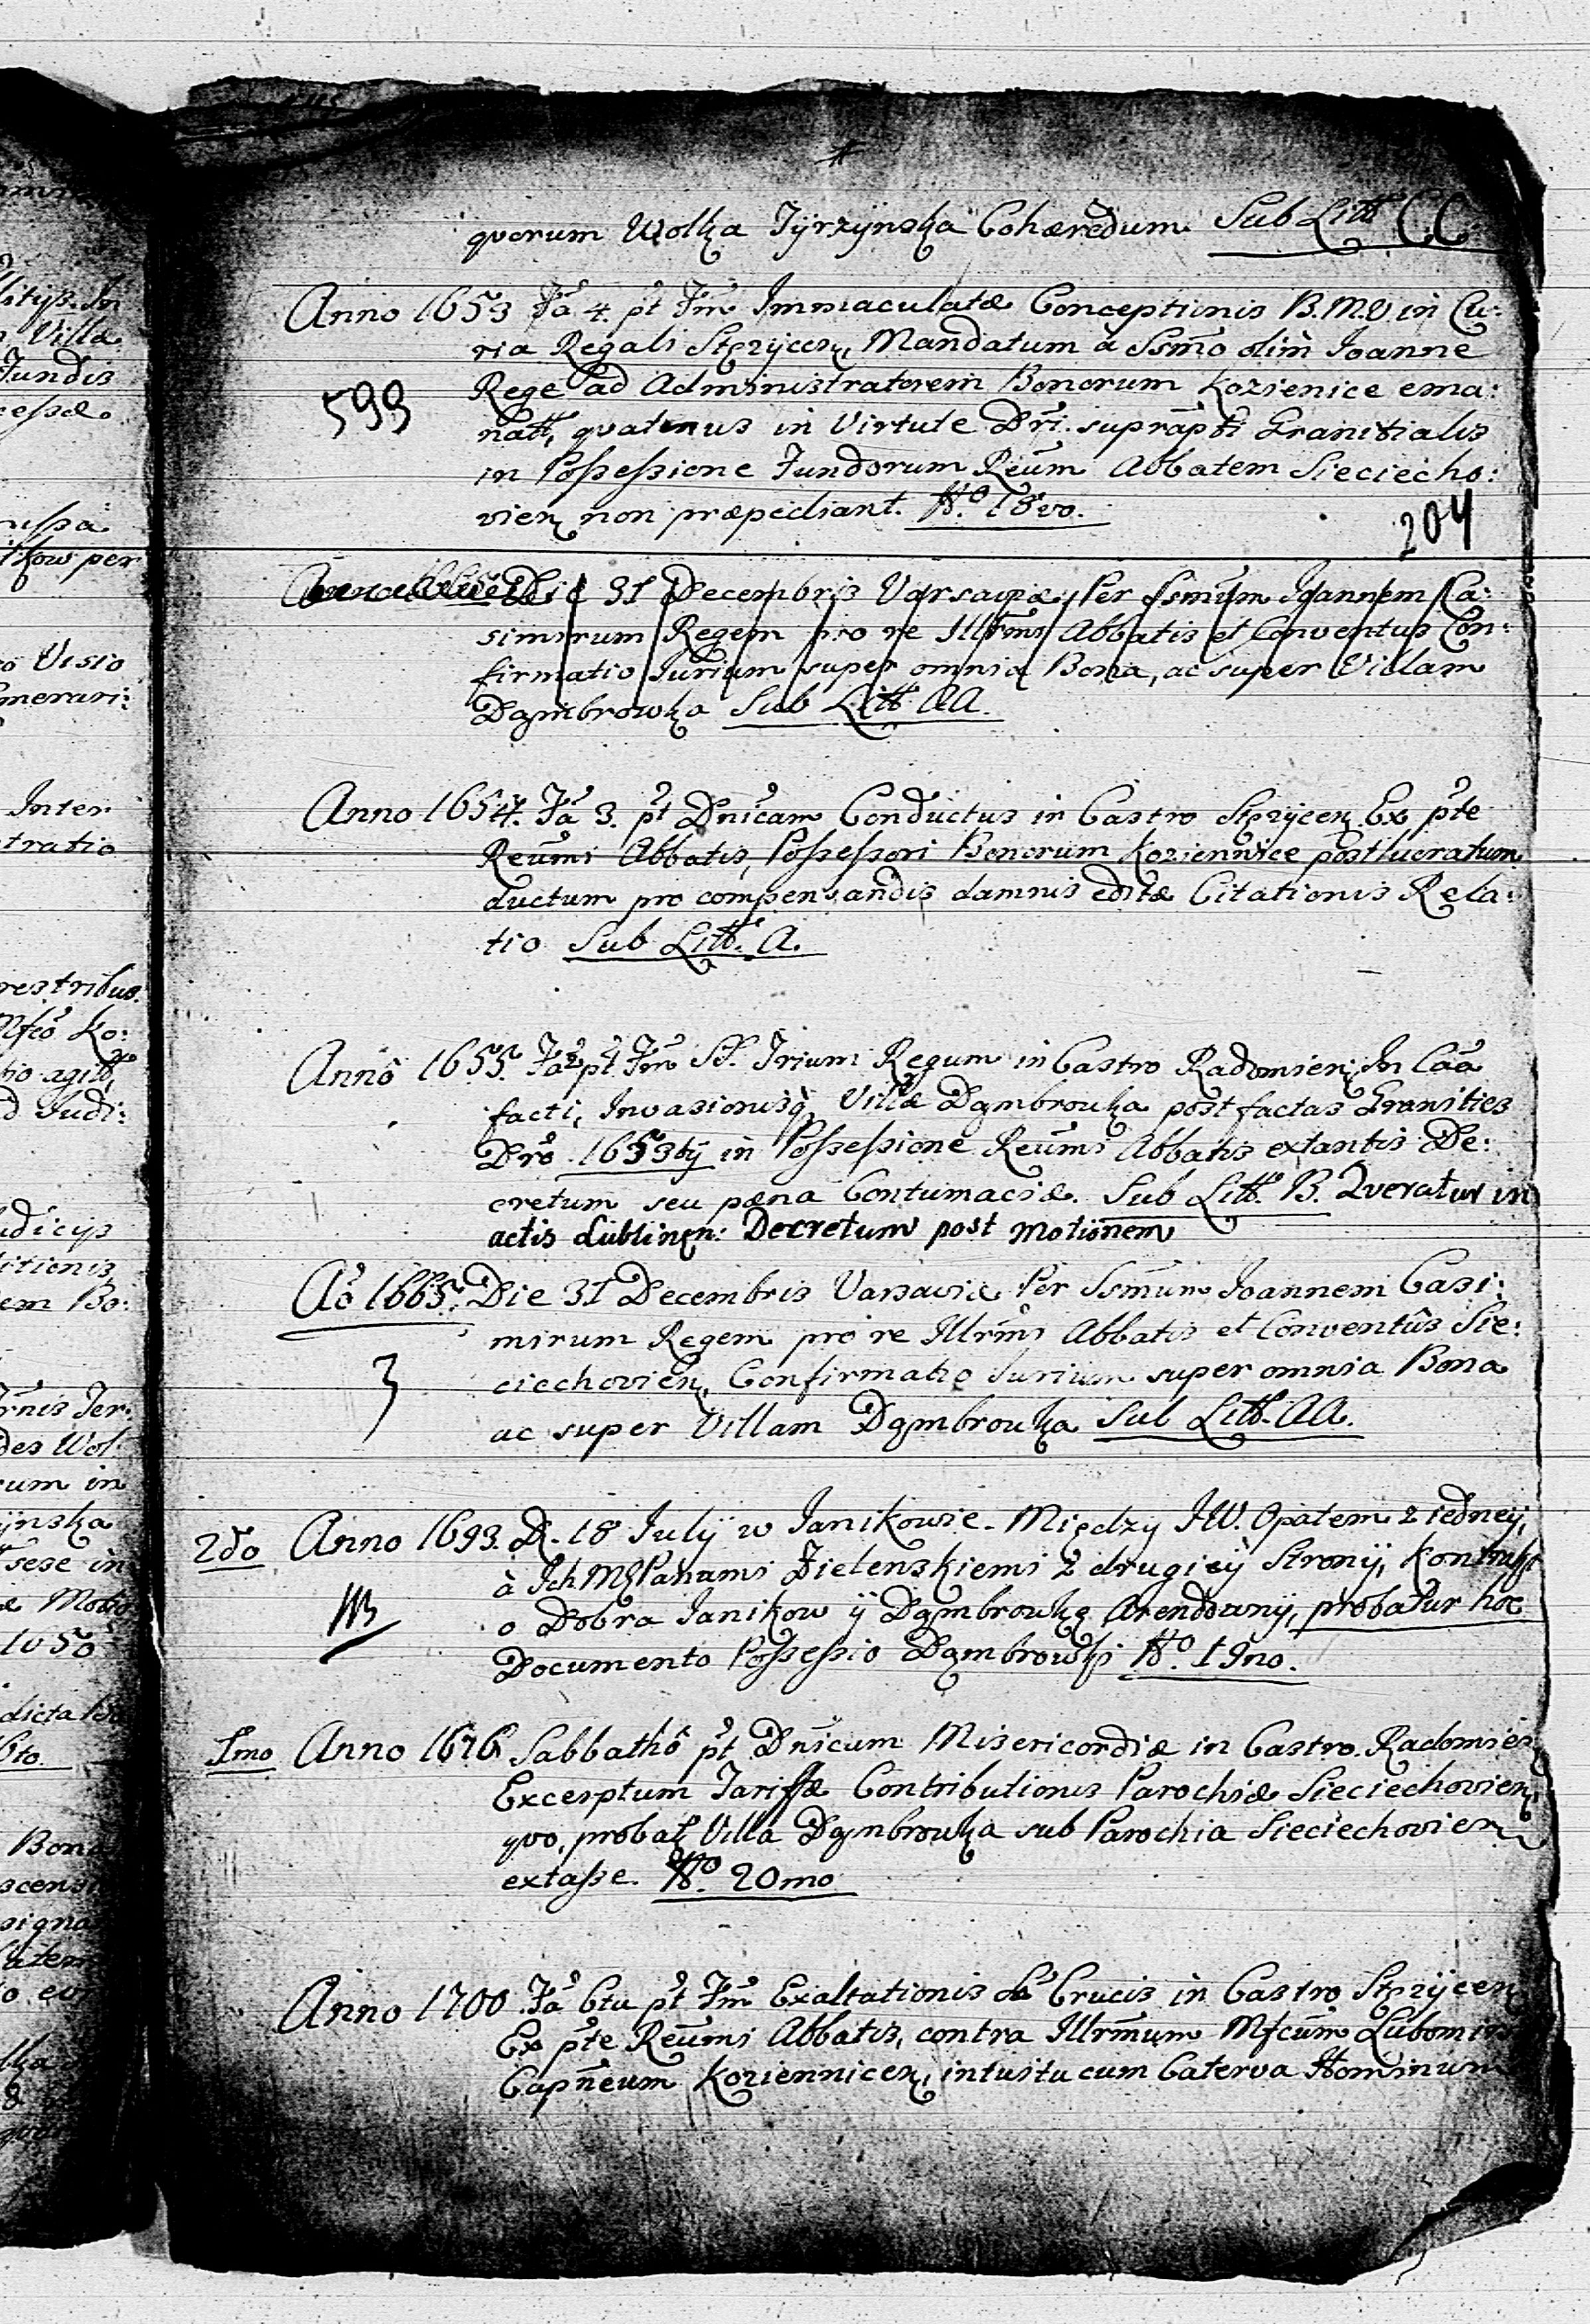 quorum Wolka Tyrzynska Cohæredum Sub Litt CC
Anno 1653 Fã 4. pt Fm Immaculatæ Conceptionis B.M.V. in Cu:
ria Regali Stezycen, Mandatum a Ssmo olim Joanne
Rege ad Administratorem Bonorum Kozienice ema:
599
natt, quatenus in Virtute Dri. suprapti Granitialis
in Possessione Fundorum Reum Abbatem Sieciecho:
vien non præpediant. No. 18vo.
204
Die 31 Decembris Varsaviæ Per Ssmum Joannem Ca:
simirum Regem pro re Illrmi Abbatis et Conventus Con:
firmatio Jurium super omnia Bona, ac super Villam
Dąmbrowka Sub Litt AA.
Anno 1654. Fã 3. pt Dnicam Conductus in Castro Stezycen Ex pte
Reumi Abbatis, Possessori Bonorum Koziennice
ductum pro compensandis damnis editæ Citationis Rela:
tio Sub Litt. A.
Anno 1655. Fã pt Fm SS. Trium Regum in Castro Radomien In Cãa
facti, Invasionisq Villæ Dąmbrowka post factas Granities
Dro 1653tij in Possessione Reumi Abbatis extantis De:
cretum seu pæna Contumaciæ. Sub Litt. B. Queratur in
actis Lublinen: Decretum post Motionem
Aõ 1665. Die 31 Decembris Varsaviæ Per Ssmum Joannem Casi:
mirum Regem pro re Illrmi Abbatis et Conventûs Sie:
3
ciechovien, Confirmatio Jurium super omnia Bona
ac super Villam Dąmbrowka Sub Litt. AA.
2do Anno 1693. D. 18 Julij w Janikowie. Między JW. Opatem z iedney,
à Ich Panami Zielenskiemi z drugiey Strony, Kontrakt
o Dobra Janikow ÿ Dąmbrowkę Arendowny, probatur hoc
Documento Possessio Dąmbrowki No. 19no.
1mo Anno 1676 Sabbathô pt Dnicum Misericordiæ in Castro Radomien
Excerptum Tariffæ Contributionis Parochiæ Sieciechovien,
quo, probat Villa Dąmbrowka sub Parochia Sieciechovien
extasse. No. 20mo
Anno 1700 Fã 6ta pt Fm Exaltationis S. Crucis in Castro Stezycen
Ex pte Reumi Abbatis, contra Illrmum Mfcum
Capneum Koziennicen, intuitu cum Caterva Hominum